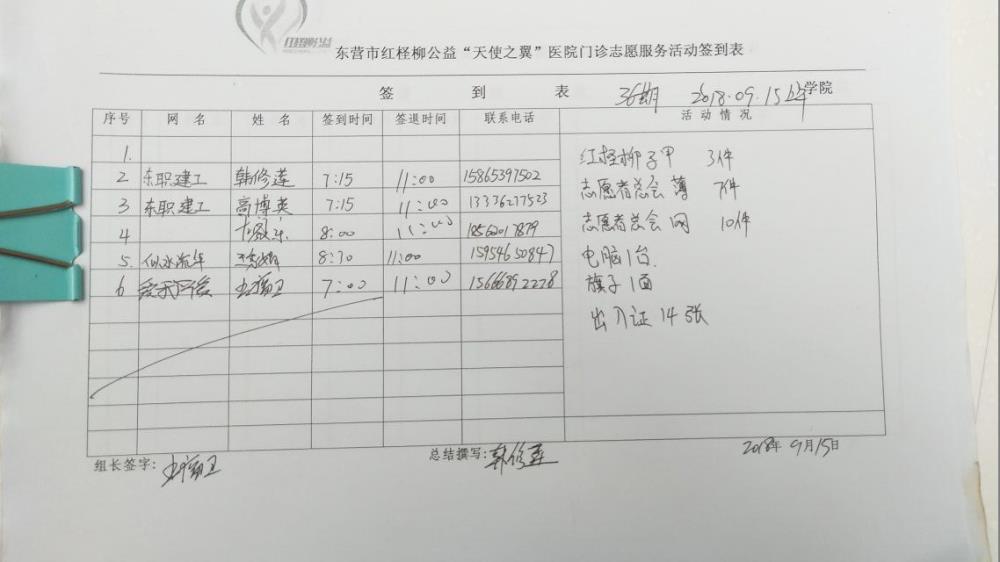 红柽柳公益
东营市红柽柳公益“天使之翼”医院门诊志愿服务活动签到表
签 到 表 36期 2018.09.15 学院
序号 网 名 姓 名 签到时间 签退时间 联系电话 活 动 情 况
1.
2 东职建工 韩修莲 7:15 11:00 15865397502
3 东职建工 高博英 7:15 11:00 13336277523
4 8:00 11:00 18562017879
5. 似水流年 8:30 11:00 15954650847
6 7:00 11:00 15666892278
红柽柳子甲 3件
志愿者总会 薄 7件
志愿者总会 网 10件
电脑1台.
旗子1面
出入证 14张
组长签字:
总结撰写: 韩修莲
2018年9月15日